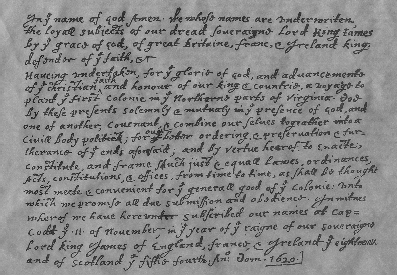 In yͤ name of god Amen. we whose names are vnderwriten,
the loyall subjects of our dread soveraigne Lord King James
by yͤ grace of god, of great Britaine, franc, & Ireland king,
defender of yͤ faith, &c
Haveing undertaken, for yͤ glorie of god, and advancemente
of yͤ christian faith and honour of our king & countrie, a voyage to
plant yͤ first colonie in yͤ Northerne parts of Virginia. Doe
by these presents solemnly & mutualy in yͤ presence of god, and
one of another, covenant & combine our selves togeather into a
Civill body politick; for our better ordering, & preservation & fur=
therance of yͤ ends aforesaid; and by vertue hearof to Enacte,
constitute, and frame such just & equall lawes, ordinances,
Acts, constitutions, & offices, from time to time, as shall be thought
most meete & convenient for yͤ generall good of yͤ colonie: unto
which we promise all due submission and obedience. In witnes
wherof we have hereunder subscribed our names at Cap=
Codd yͤ .11. of November, in yͤ year of yͤ raigne of our soveraigne
Lord king James of England, france, & Ireland yͤ eighteenth
and of Scotland yͤ fiftie fourth. Anͦ: Dom. 1620.